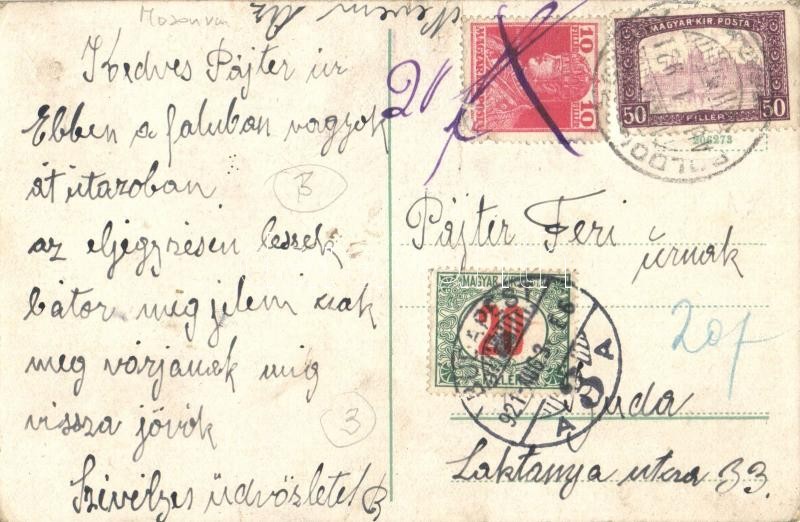 Mosonvár
Nevem Az
Kedves Pájter úr
Ebben a faluban vagyok
át utazoban
az eljegyzésen leszek
bátor meg jeleni csak
meg várjanak mig
vissza jövök
Szivélyes üdvözlettel B
B
3
20f
10 10
MAGYAR KIR. POSTA
50 FILLÉR 50
206273
Pájter Feri
úrnak
MAGYAR KIR
FILLÉR
BUDAPEST
921 AUG 3
A A
20f
Buda
Laktanya utcza 33.